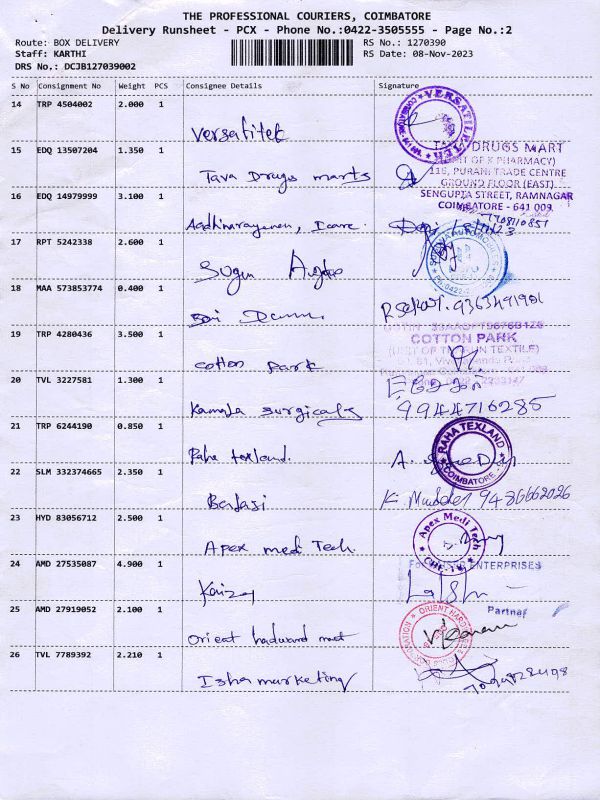 THE PROFESSIONAL COURIERS, COIMBATORE
Delivery Runsheet - PCX - Phone No.:0422-3505555 - Page No.:2
Route: BOX DELIVERY
RS No.: 1270390
Staff: KARTHI
RS Date: 08-Nov-2023
DRS No.: DCJB127039002
S No Consignment No Weight PCS Consignee Details Signature
14 TRP 4504002 2.000 1
Versatitek
15 EDQ 13507204 1.350 1
DRUGS MART
(UNIT OF X PHARMACY)
116, PURANI TRADE CENTRE
GROUND FLOOR (EAST)
Tava Drugs marts
16 EDQ 14979999 3.100 1
SENGUPTA STREET, RAMNAGAR
COIMBATORE - 641 009.
Aadhinarayanan, Icare
17 RPT 5242338 2.600 1
Sugun
18 MAA 573853774 0.400 1
9363491901
19 TRP 4280436 3.500 1
COTTON PARK
cotton park
20 TVL 3227581 1.300 1
Kamala surgicals
9944716285
21 TRP 6244190 0.850 1
RAHA TEXLAND
COIMBATORE
Raha texland.
22 SLM 332374665 2.350 1
Balaji
9486662026
23 HYD 83056712 2.500 1
Apex Medi Tech
Apex medi Tech.
24 AMD 27535087 4.900 1
ENTERPRISES
Partner
25 AMD 27919052 2.100 1
Orient hadward mat
26 TVL 7789392 2.210 1
Isha marketing